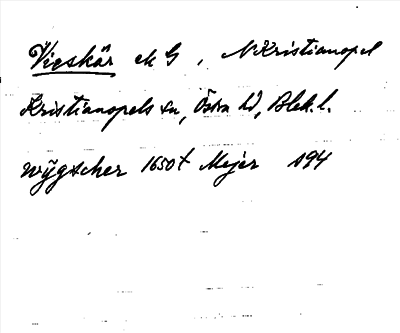 Vieskär ck G, N Kristianopel
Kristianopels sn, Östra hd, Blek. l.
wÿgscher 1650t Mejer 194